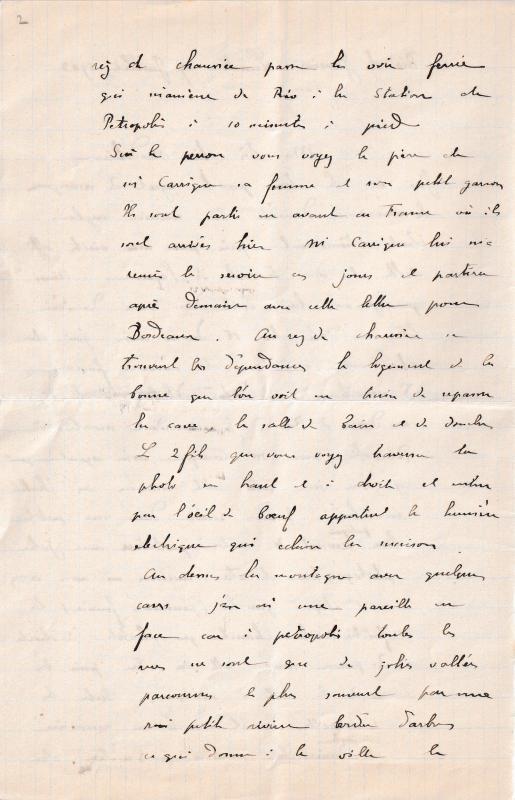 2
rez de chaussée passe la voie ferrée
qui m'amène de Rio à la Station de
Petropolis à 10 minutes à pied
Sur le perron vous voyez le père de
Mr Carrigue sa femme et son petit garçon
Ils sont partis en avant en France où ils
sont arrivés hier Mr Carrigue lui
le service ces jours et partira
après demain avec cette lettre pour
Bordeaux. Au rez de chaussée se
trouvent les dépendances le logement de la
bonne que l'on voit en train de repasser
la cave la salle de bain et de douches
Ls 2 fils que vous voyez traverser la
photo en haut et à droite et entrer
par l'oeil de boeuf apportent la lumière
electrique qui eclaire la maison
Au dessus la montagne avec quelques
cases j'en ai une pareille en
face car à petropolis toutes les
rues ne sont que de jolies vallées
parcourues le plus souvent par une
petite rivière bordée d'arbres
ce qui donne à la ville le